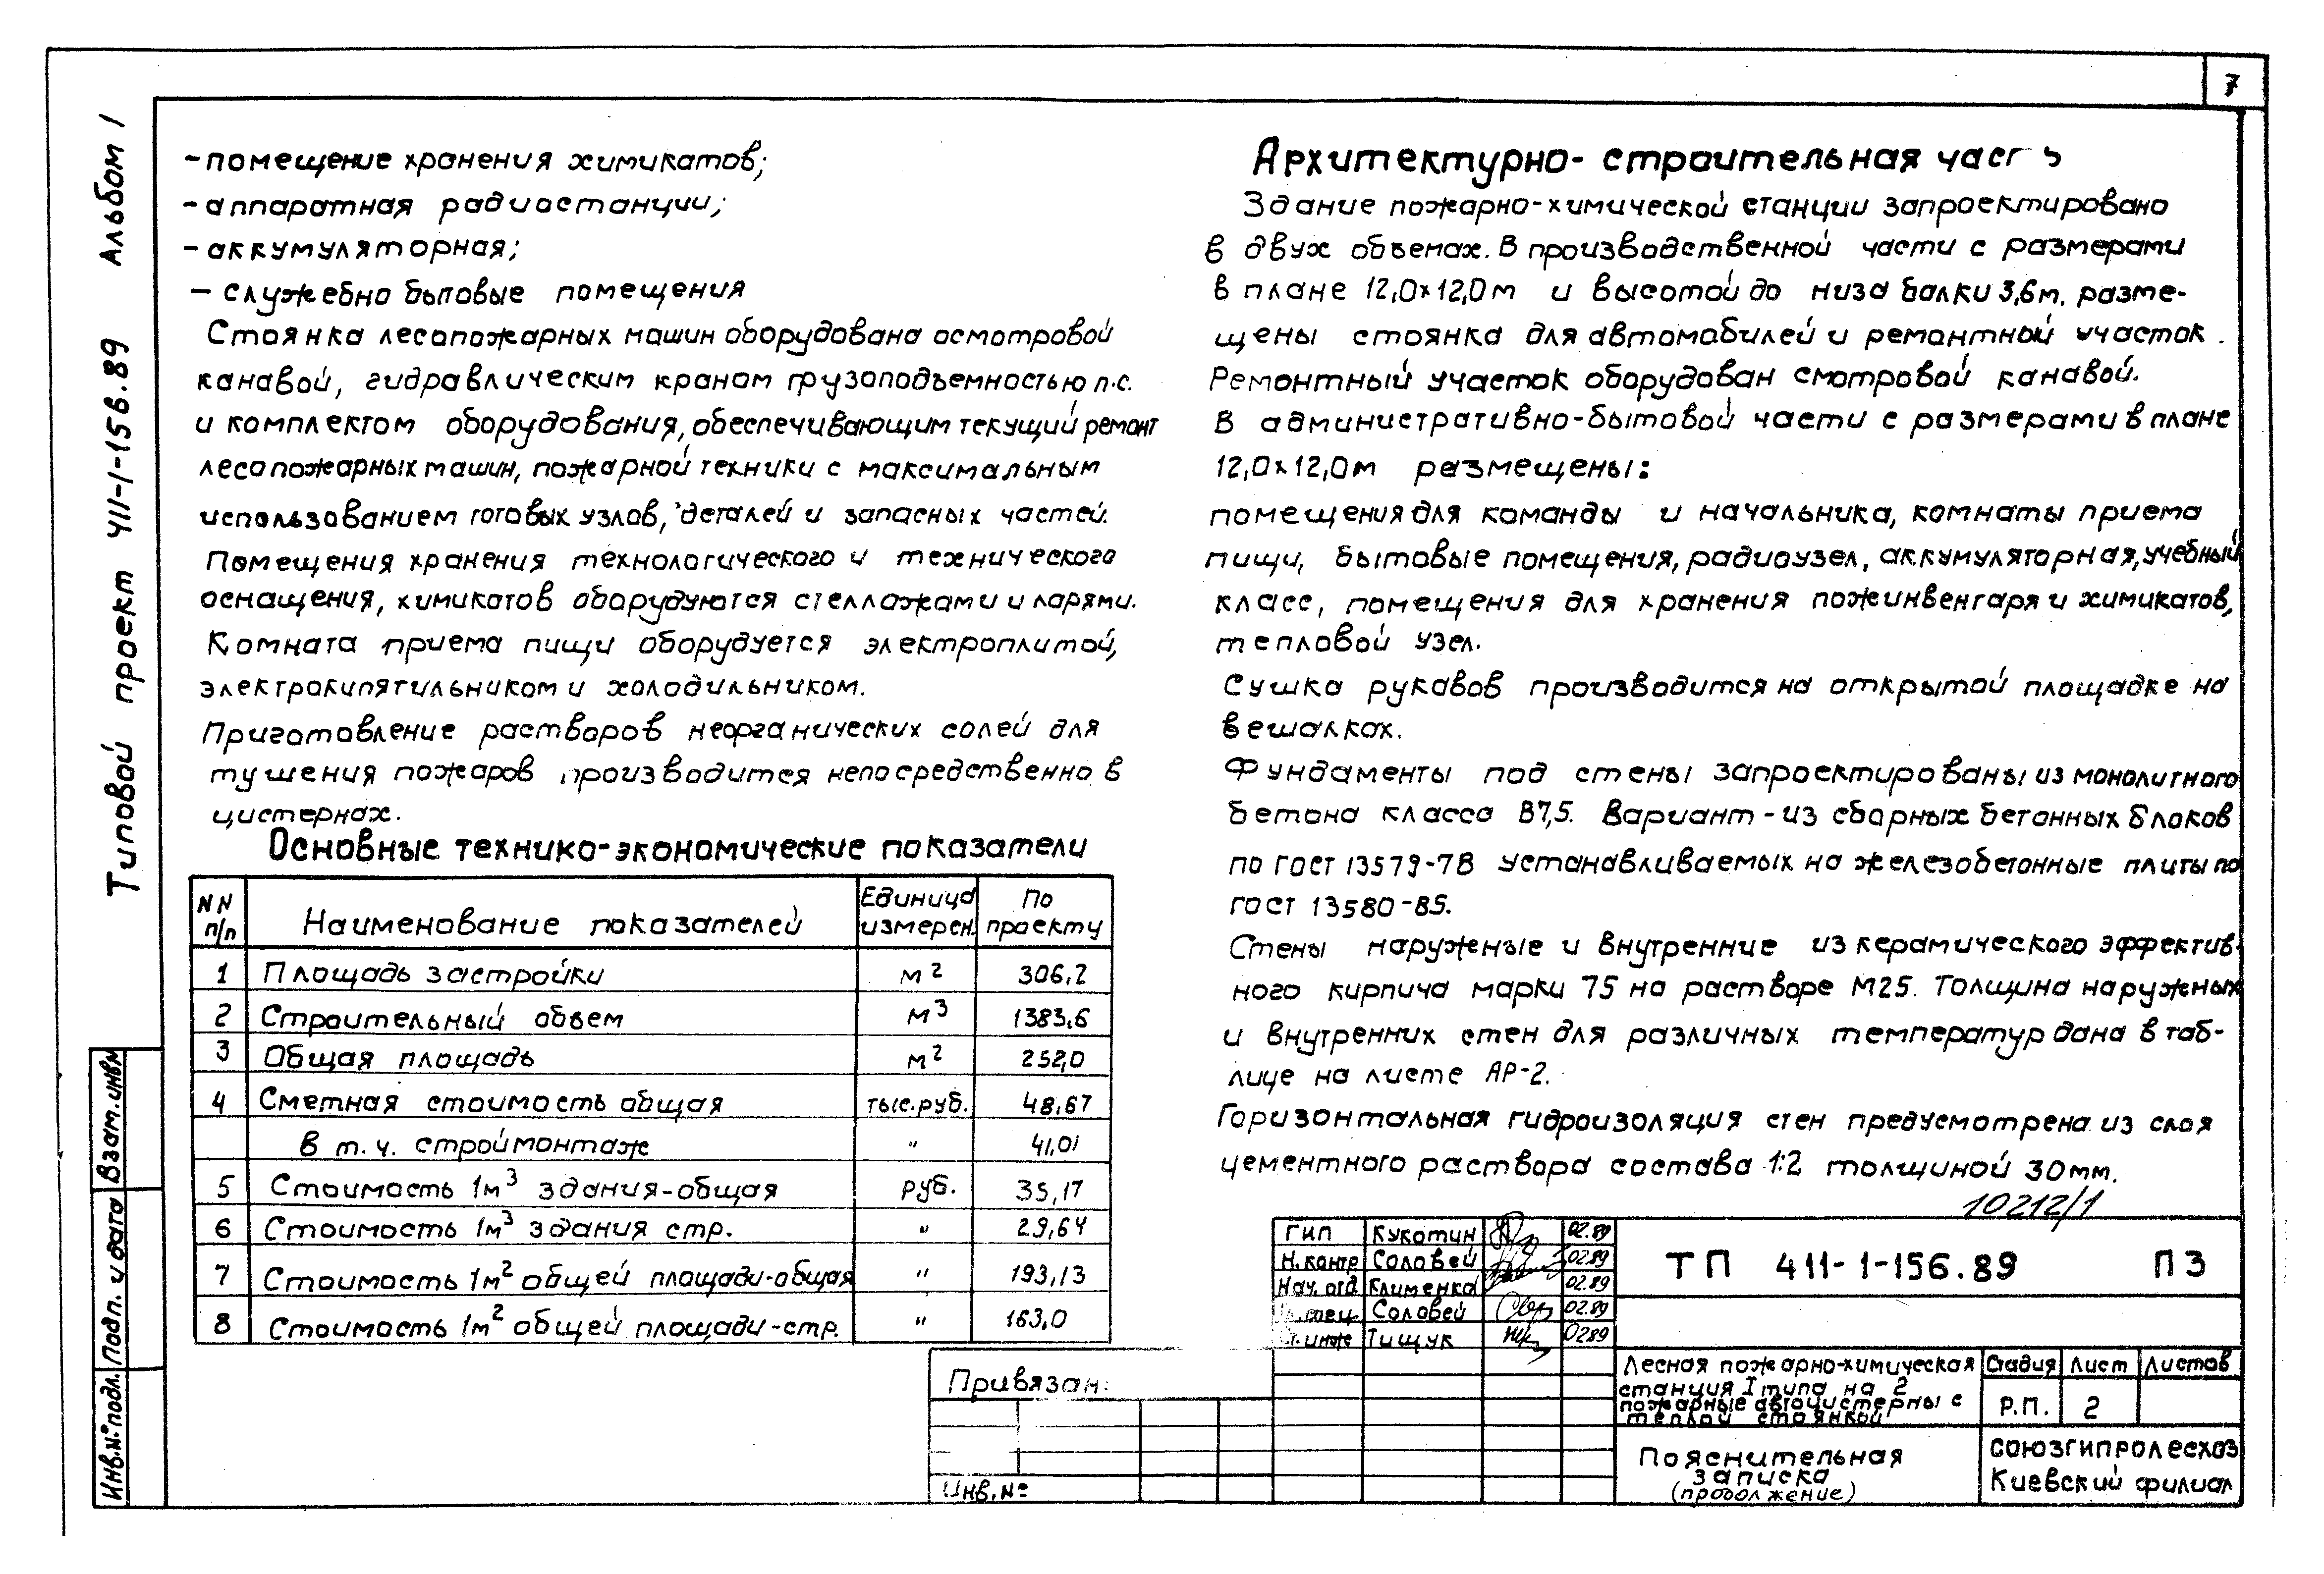 7
Альбом 1
Типовой проект 411-1-156.89
-помещение хранения химикатов;
-аппаратная радиостанции;
-аккумуляторная;
- служебно бытовые помещения
Стоянка лесопожарных машин оборудована осмотровой
канавой, гидравлическим краном грузоподъемностью п.с.
и комплектом оборудования, обеспечивающим текущий ремонт
лесопожарных машин, пожарной техники с максимальным
использованием готовых узлов, деталей и запасных частей.
Помещения хранения технологического и технического
оснащения, химикатов оборудуются стеллажами и ларями.
Комната приема пищи оборудуется электроплитой,
электрокипятильником и холодильником.
Приготовление растворов неорганических солей для
тушения пожаров производится непосредственно в
цистернах.
Основные технико-экономические показатели
NN п/п Наименование показателей Единица измерен. По проекту
1 Площадь застройки м2 306,2
2 Строительный объем м3 1383,6
3 Общая площадь м2 252,0
4 Сметная стоимость общая тыс.руб. 48,67
в т.ч. строймонтаж " 41,01
5 Стоимость 1м3 здания-общая руб. 35,17
6 Стоимость 1м3 здания стр. " 29,64
7 Стоимость 1м2 общей площади-общая " 193,13
8 Стоимость 1м2 общей площади-стр. " 163,0
Архитектурно-строительная часть
Здание пожарно-химической станции запроектировано
в двух объемах. В производственной части с размерами
в плане 12,0х12,0м и высотой до низа балки 3,6м. разме-
щены стоянка для автомобилей и ремонтный участок.
Ремонтный участок оборудован смотровой канавой.
В административно-бытовой части с размерами в плане
12,0х12,0м размещены:
помещения для команды и начальника, комнаты приема
пищи, бытовые помещения, радиоузел, аккумуляторная, учебный
класс, помещения для хранения пожинвентаря и химикатов,
тепловой узел.
Сушка рукавов производится на открытой площадке на
вешалках.
Фундаменты под стены запроектированы из монолитного
бетона класса В7,5. Вариант-из сборных бетонных блоков
по ГОСТ 13579-78 устанавливаемых на железобетонные плиты по
ГОСТ 13580-85.
Стены наружные и внутренние из керамического эффектив-
ного кирпича марки 75 на растворе М25. Толщина наружных
и внутренних стен для различных температур дана в таб-
лице на листе АР-2.
Горизонтальная гидроизоляция стен предусмотрена из слоя
цементного раствора состава 1:2 толщиной 30мм.
10212/1
ГИП Кукотин 02.89
Н.контр Соловей 02.89
Нач.отд Клименко 02.89
спец. Соловей 02.89
инж Тищук 0289
ТП 411-1-156.89 ПЗ
Лесная пожарно-химическая
станция I типа на 2
пожарные автоцистерны с
теплой стоянкой
Стадия Лист Листов
Р.П. 2
Пояснительная
записка
(продолжение)
СОЮЗГИПРОЛЕСХОЗ
Киевский филиал
Привязан:
Инв.№
Взам.инв.№
Подп. и дата
Инв.№ подл.